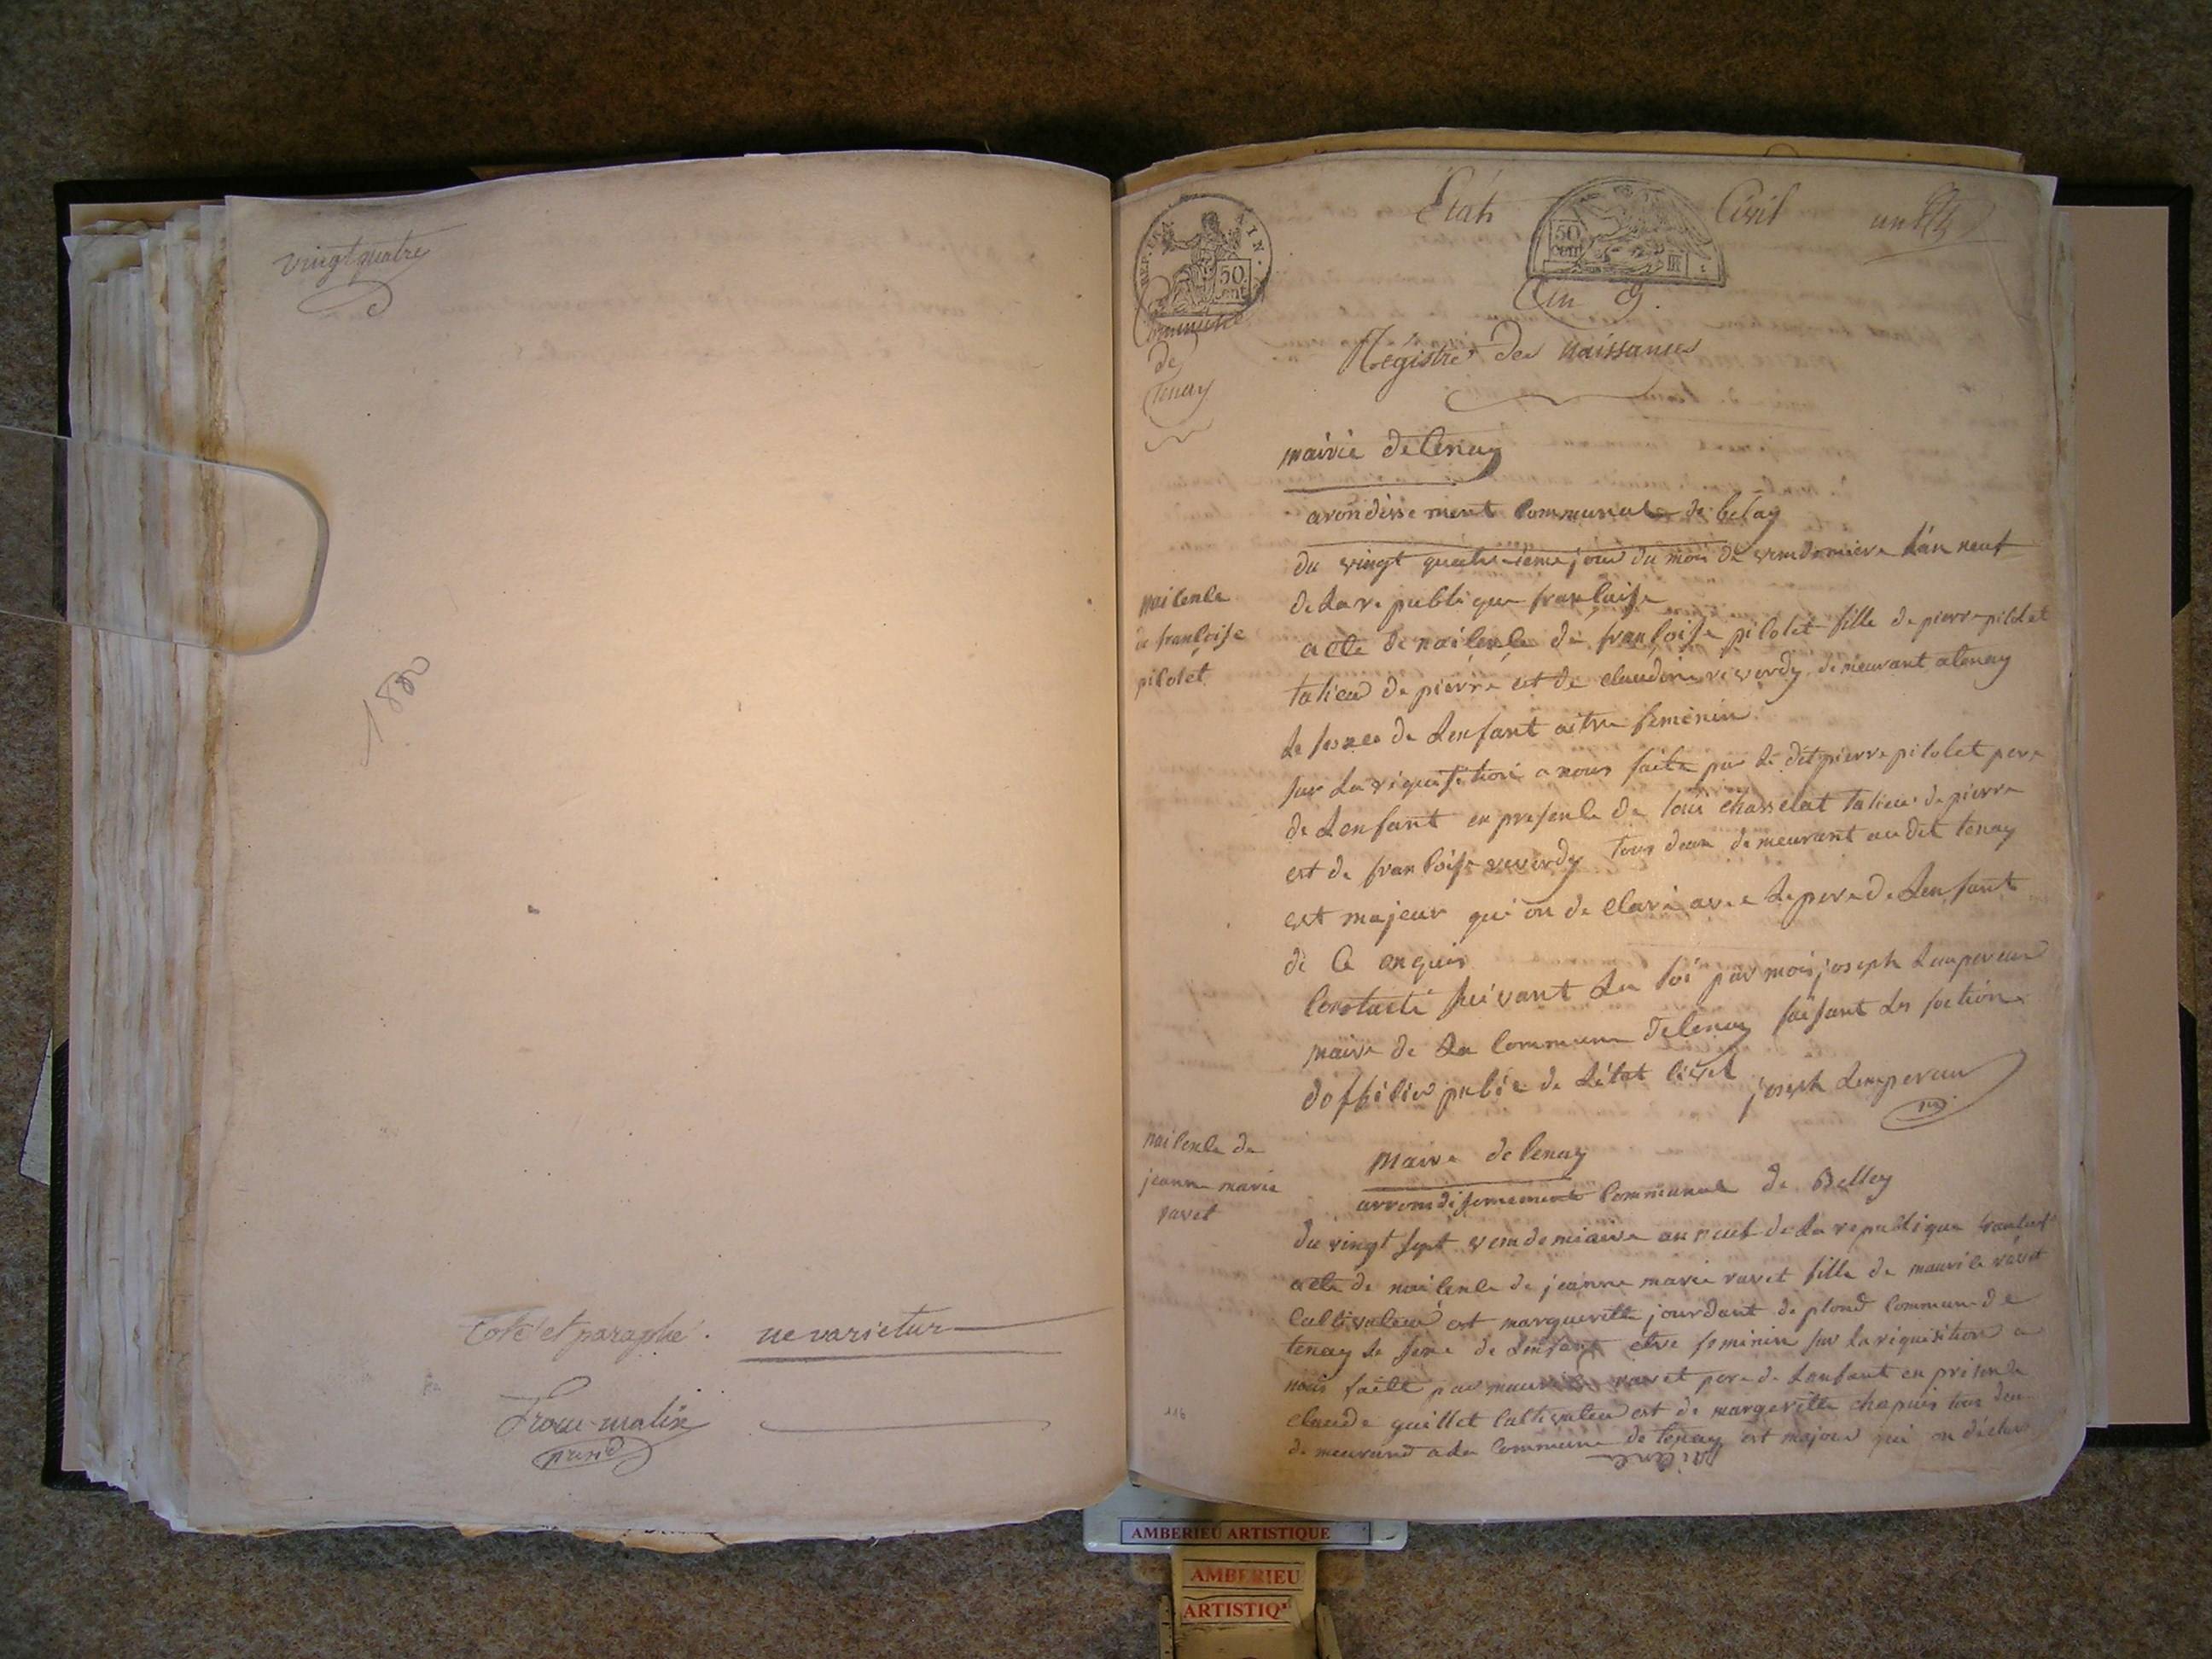 vingt quatre
1880
Coté et paraphé. ne varietur
présid
REP. FRA. AIN.
50 cent
État Civil
50 cent
un
An 9.
Commune
de
Tenay
Régistre des Naissances
mairie de tenay
arondissement communal de belay
du vingt quatrieme jour du mois de vendemiere l'an neuf
de la republique francaise
naicence
de francoise
pilolet
acte de naicence de francoise pilolet fille de pierre pilolet
talieur de pierre et de claudine reverdy demeurant a tenay
le sexe de lenfant a etre feminin
sur la requisition a nous faite par le dit pierre pilolet pere
de lenfant en presence de louis chasselat talieur de pierre
est de francoise reverdy tous deux demeurant au dit tenay
est majeur qui on declaré avec le pere de lenfant
de ce enquis
constaté suivant la loi par moi joseph lempereur
maire de la commune de tenay faisant les foctions
dofficier public de létat civil joseph Lempereur
naicence de
jeanne marie
ravet
Maire de tenay
arrondissement communal de Belley
du vingt sept vendemiaire an neuf de la republique
acte de naicence de jeanne marie ravet fille de maurice ravet
cultivateur est marguerite jourdant de plond commun de
tenay le sexe de lenfant etre feminin sur la requisition a
nous faite par maurice ravet pere de lenfant en presence
claude guillot cultivateur est de margerite chapuis tous deu
demeurand a la commune de tenay est majeur qui on déclar
116
AMBERIEU ARTISTIQUE
AMBERIEU
ARTISTIQ